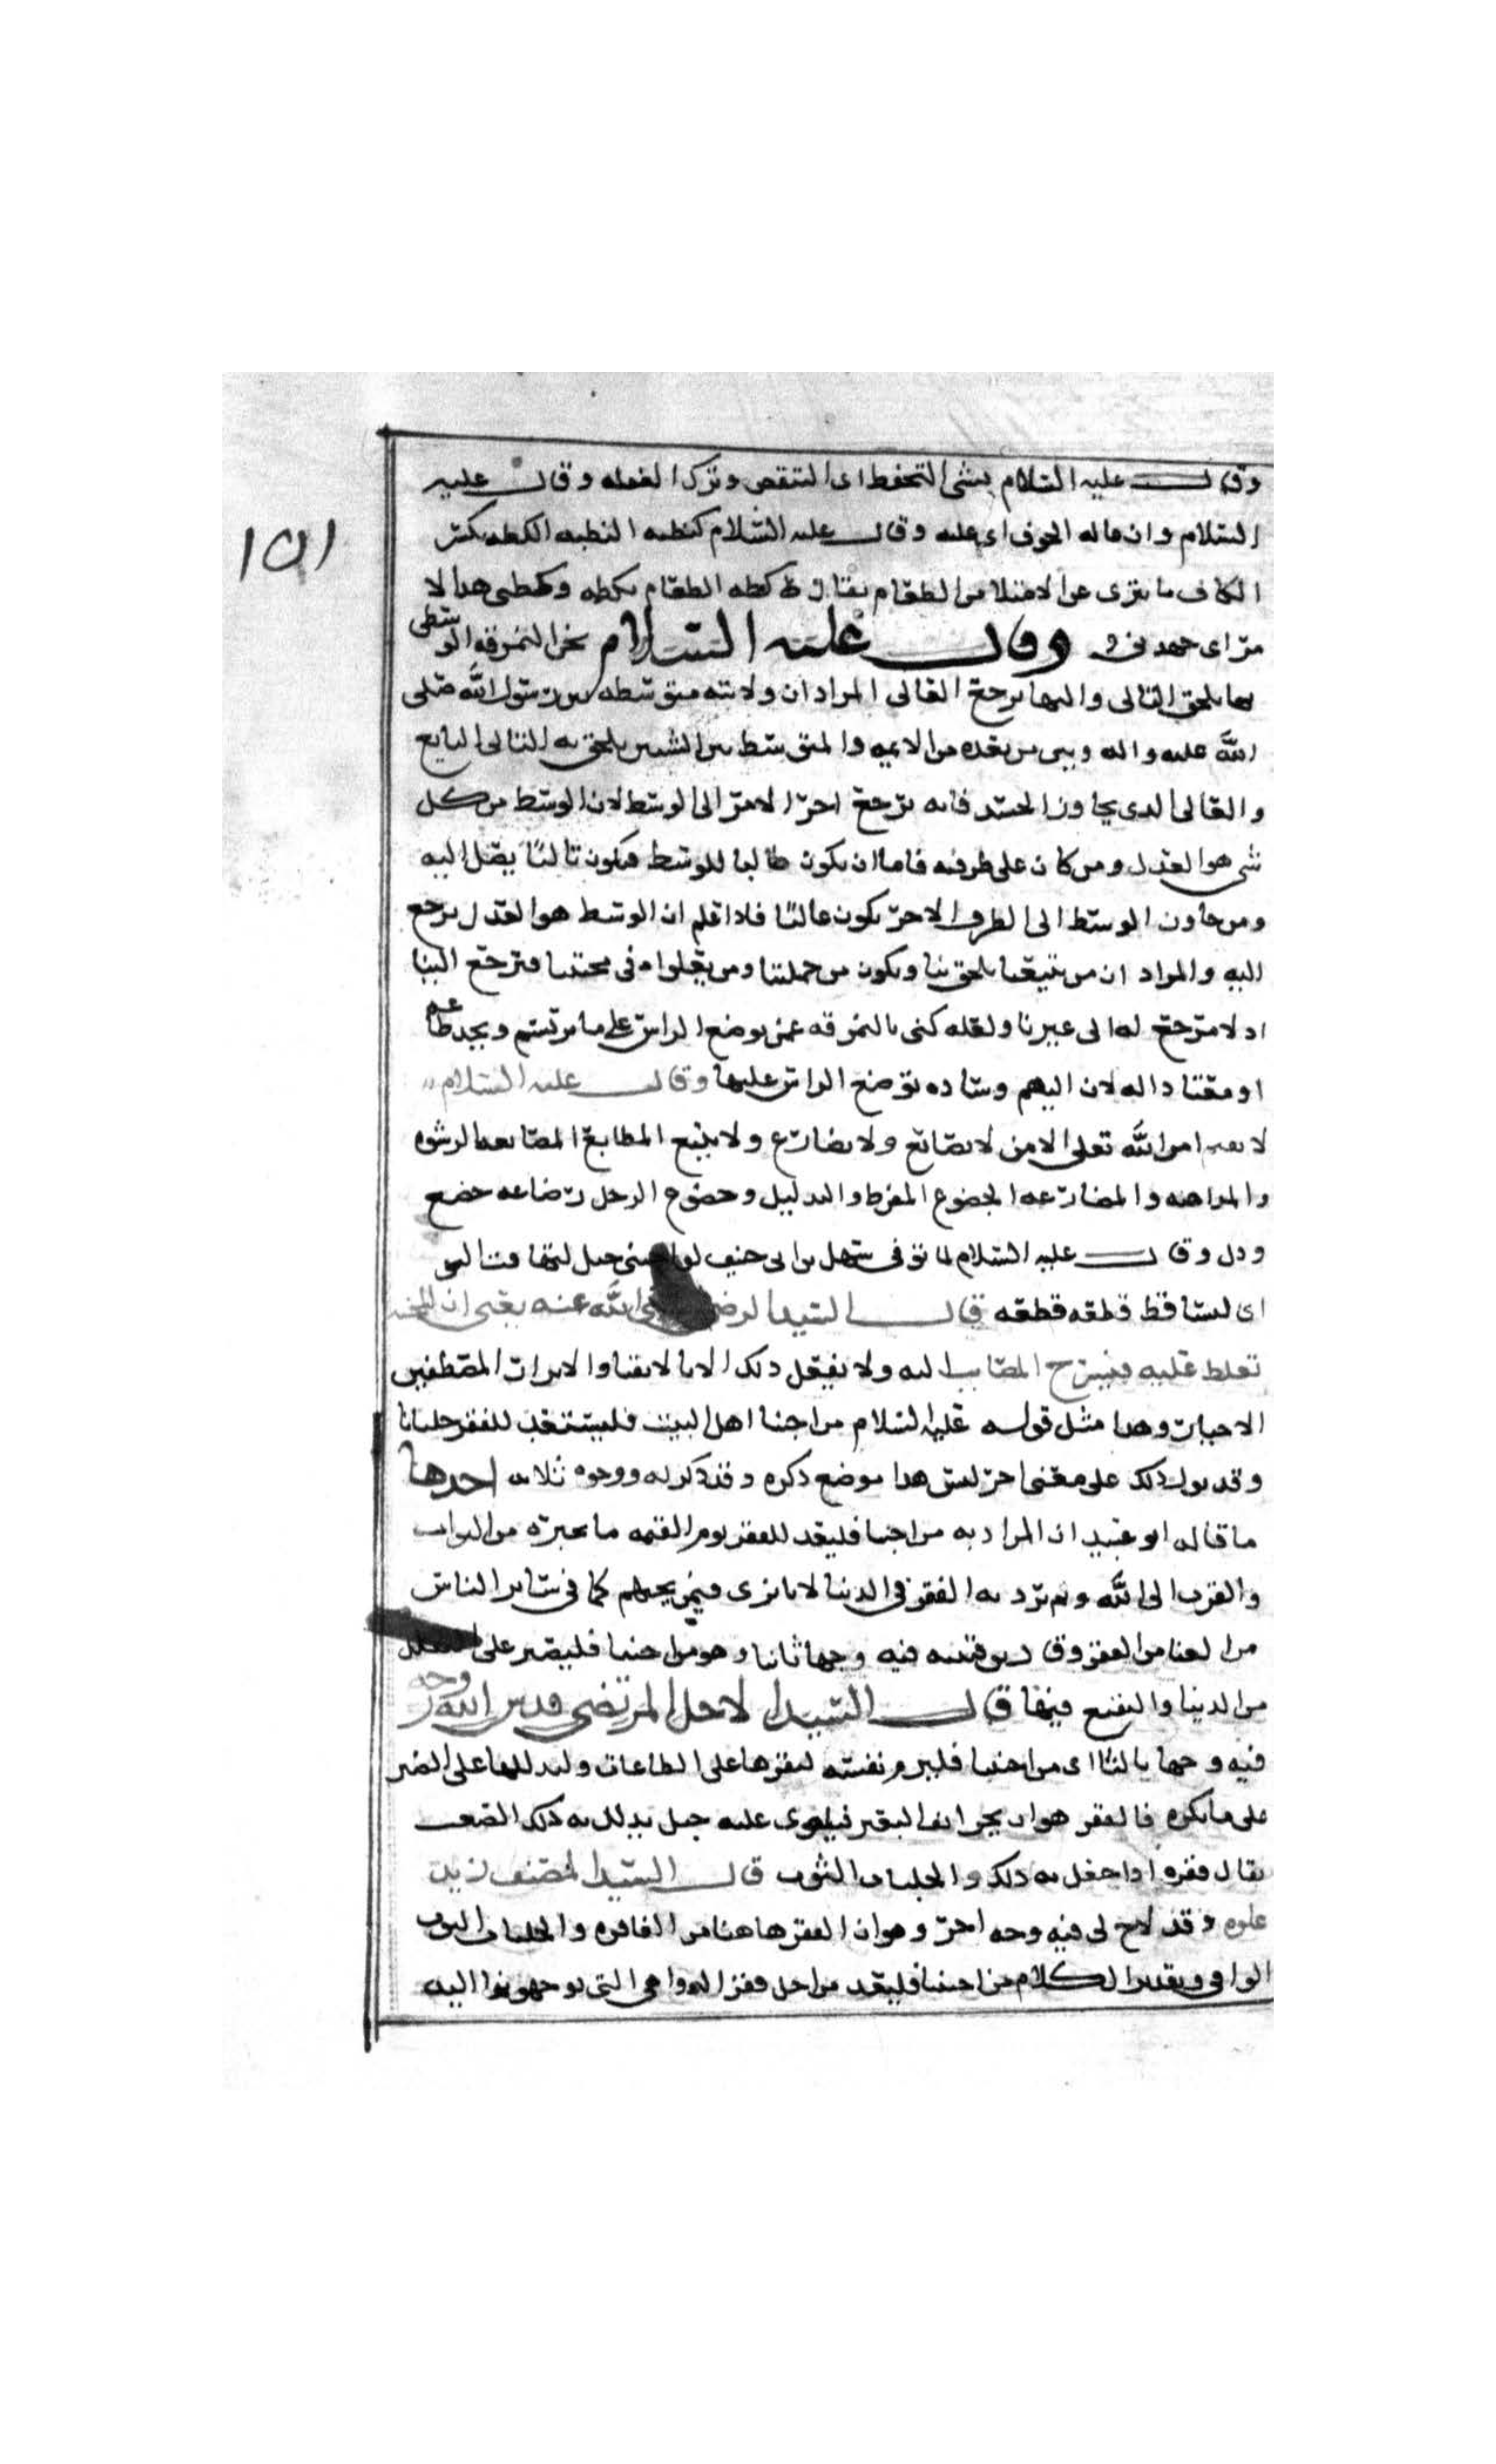 وقال عليه السلام نسي التحفظ اى التيقض وترك الغفله وقال عليه
السلام وان عاله الخوف اى غلبه وقال عليه السلام كظته البطنه الكظه بكسر
الكاف ما يعترى عن الامتلا من الطعام يقال كظه الطعام يكظه وكظنى هدا الا
مر اى جهدنى وقال عليه السلام نحن النمرقه الوسطى
بها يلحق التالى واليها يرجع الغالى المراد ان ولايته متوسطه بين رسول الله صلى
الله عليه واله وبين من بعده من الايمه والمتوسط بين الشيين يلحق به التالى التابع
والغالى الدى يجاوز الحد فانه يرجع اخر الامر الى الوسط لان الوسط من كل
شى هو العدل ومن كان على طرفيه فاما ان يكون طالبا للوسط فيكون تاليًا يصل اليه
ومن جاوز الوسط الى الطرف الاخر يكون غاليًا فادا علم ان الوسط هو العدل يرجع
اليه والمراد ان من يتبعنا يلحق بنا ويكون من جملتنا ومن يغلوا فى محبتنا فيرجع الينا
اد لا مرجع له الى غيرنا ولعله كنى بالنمرقه عن موضع الراس على ما يرتسم
او معتادا له لان وساده توضع الراس عليها وقال عليه السلام
لا يقيم امر الله تعلى الا من لا يصانع ولا يضارع ولا يتبع المطامع المصانعه الرشوه
والمداهنه والمضارعه الخضوع المفرط والتدليل وخضوع الرجل رضاعه خضع
ودل وقال عليه السلام لما توفى سهل بن حنيف لو احبنى جبل لتهافت
اى لتساقط قطعه قطعه قال السيد الرضى رضى الله عنه يعنى ان المحنه
تغلط عليه فتسرع المصايب اليه ولا يفعل دلك الا بالاتقيا والابرار المصطفين
الاخيار وهدا مثل قوله عليه السلام من احبنا اهل البيت فليستعد للفقر جلبابا
وقد يول دلك على معنى اخر ليس هدا موضع دكره وقد دكر له وجوه ثلاثه احدها
ما قاله ابو عبيد ان المراد به من احبنا فليعد للفقر يوم القيمه ما يجبره من الثواب
والقرب الى الله ولم يرد به الفقر فى الدنيا لانا نرى فيمن يحبهم كما فى ساير الناس
من الغنا من الفقر وقال بن قتيبه فيه وجها ثانيا وهو من احبنا فليصبر على التقلل
من الدنيا والتقنع فيها قال السيد الاجل المرتضى قدس الله روحه
فيه وجها ثالثا اى من احبنا فليرم نفسه ليقرها على الطاعات وليدللها على الصبر
على ما يكره فالفقر هو ان يحز انف البعير فيلوى عليه حبل يدلل به دلك الصعب
يقال فقره ادا فعل به دلك والجلباب الثوب قال السيد المصنف زيدت
علومه وقد لاح لى فيه وجه اخر وهو ان الفقر هاهنا من الفاقره والجلباب الثوب
الوافى وتقدير الكلام من احبنا فليعد من اجل فقر الدواهى التى يوجهونها اليه
١٥١